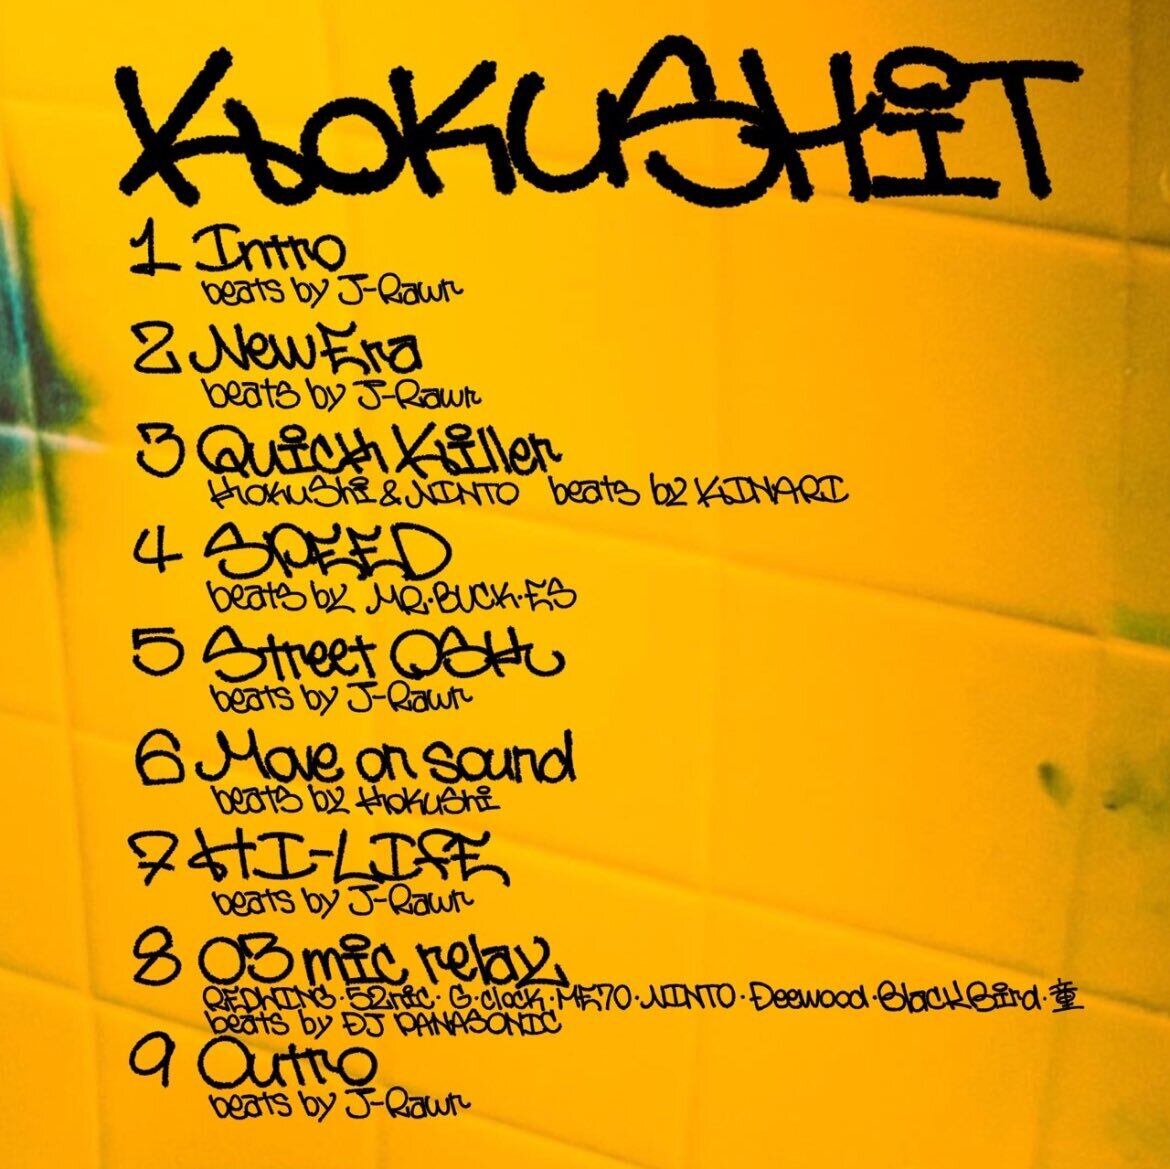 KOKUSHiT
1 Intro
beats by J-Rawr
2 New Era
beats by J-Rawr
3 Quick Killer
KOKUSHi & NINTO beats by KINARI
4 SPEED
beats by MR.BUCK.ES
5 Street OSK
beats by J-Rawr
6 Move on sound
beats by KOKUSHi
7 HI-LIFE
beats by J-Rawr
8 03 mic relay
REDWING・52nic・G-clock・ME70・NINTO・Deewood・BlackBird・童
beats by DJ PANASONIC
9 Outro
beats by J-Rawr